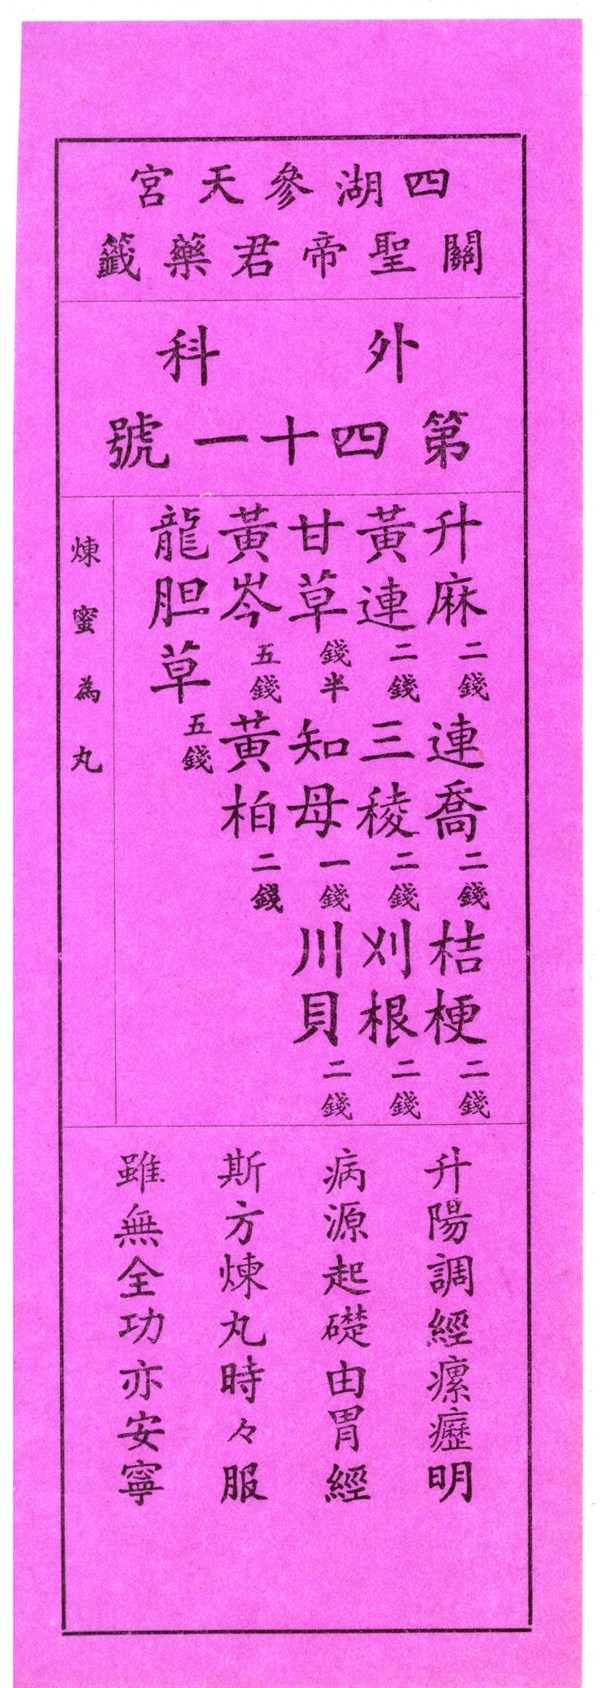 四湖參天宮
關聖帝君藥籤
外科
第四十一號
升麻二錢 連喬二錢 桔梗二錢
黃連二錢 三稜二錢 刈根二錢
甘草錢半 知母一錢 川貝二錢
黃岑五錢 黃柏二錢
龍胆草五錢
煉蜜為丸
升陽調經瘰癧明
病源起礎由胃經
斯方煉丸時々服
雖無全功亦安寧